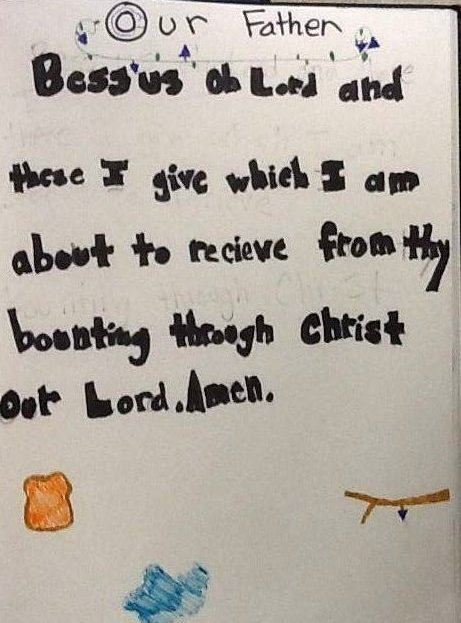 Our Father
Bess us oh Lord and
these I give which I am
about to recieve from thy
bounting through Christ
our Lord. Amen.